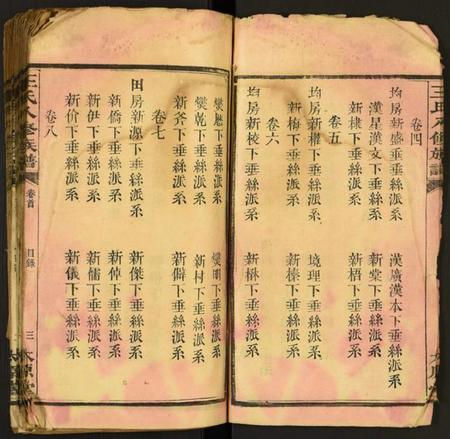 卷四
均房新盛下垂絲派系
漢廣漢本下垂絲派系
漢星漢文下垂絲派系
新棠下垂絲派系
新棣下垂絲派系
新梧下垂絲派系
卷五
均房新權下垂絲派系
境理下垂絲派系
新梅下垂絲派系
新榛下垂絲派系
卷六
均房新棱下垂絲派系
新楙下垂絲派系
燮明下垂絲派系
燮乾下垂絲派系
新村下垂絲派系
新斧下垂絲派系
新僻下垂絲派系
卷七
田房新源下垂絲派系
新傑下垂絲派系
新僑下垂絲派系
新倬下垂絲派系
新伊下垂絲派系
新儒下垂絲派系
新价下垂絲派系
新儀下垂絲派系
卷八
王氏八修族譜
卷首
目錄
三
太原堂